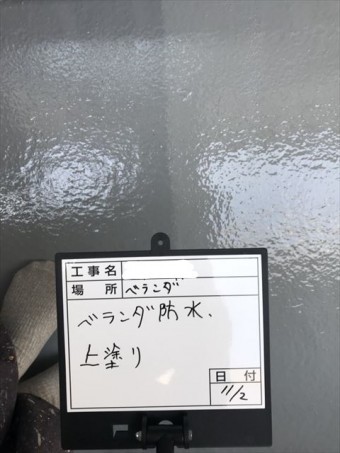 工事名
場所 ベランダ
ベランダ防水、
上塗り
日付
11/2